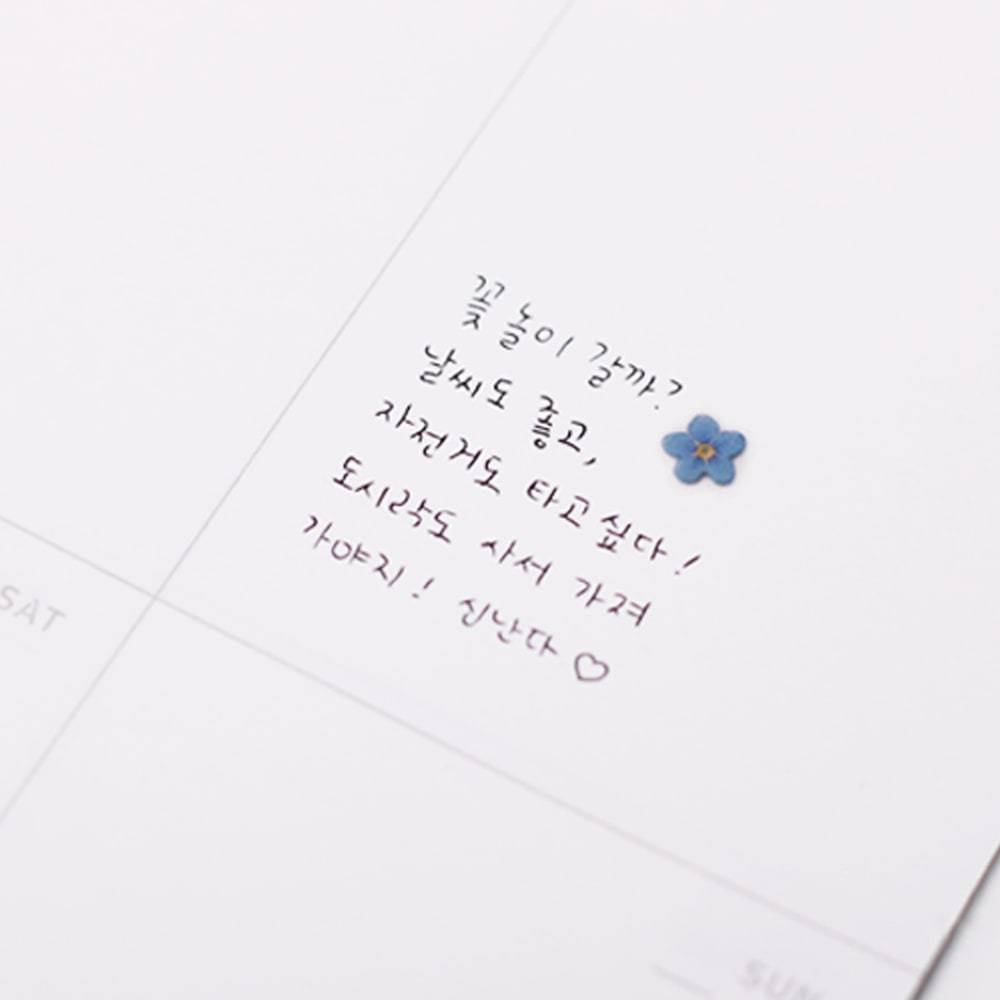 꽃놀이 갈까?
날씨도 좋고,
자전거도 타고싶다!
도시락도 사서 가져
가야지! 신난다♡
SAT
SUN